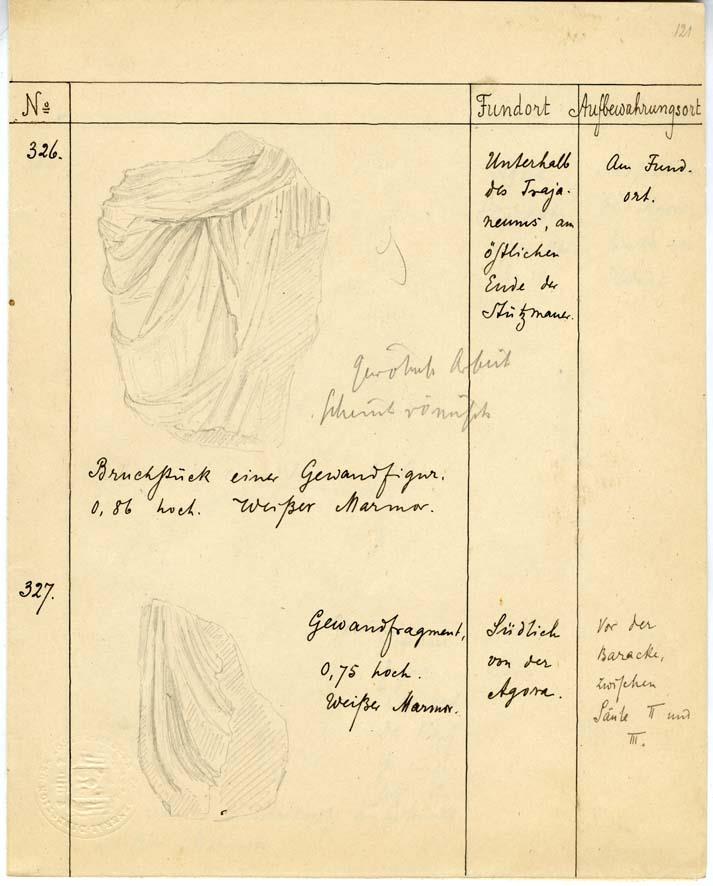 121
No Fundort Aufbewahrungsort
326.
Unterhalb
des Traja-
neums, am
östlichen
Ende der
Stützmauer.
Am Fund-
ort.
Arbeit
scheint römisch
Bruchstück einer Gewandfigur.
0,86 hoch. Weißer Marmor.
327.
Gewandfragment,
0,75 hoch.
Weißer Marmor.
Südlich
von der
Agora.
Vor der
Baracke,
zwischen
Säule II und
III.